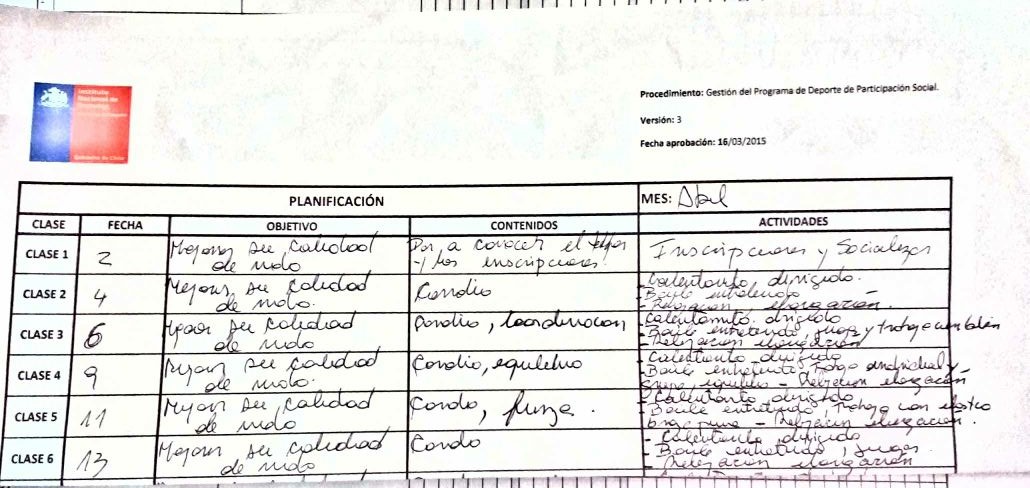 Instituto
Nacional de
Gobierno de Chile
Procedimiento: Gestión del Programa de Deporte de Participación Social.
Versión: 3
Fecha aprobación: 16/03/2015
PLANIFICACIÓN
MES: Abril
CLASE FECHA OBJETIVO CONTENIDOS ACTIVIDADES
CLASE 1 2 Mejorar su calidad
de vida
a conocer el
y las inscripciones.
Inscripciones y Socializar
CLASE 2 4 Mejorar su calidad
de vida.
Cardio
- Calentamiento dirigido.
- Baile entretenido
- Relajación elongación.
CLASE 3 6 Mejorar su calidad
de vida
Cardio, coordinación
- Calentamiento dirigido
- Baile entretenido, y trabajo con
- Relajación elongación
CLASE 4 9 Mejorar su calidad
de vida.
Cardio, equilibrio
- Calentamiento dirigido
- Baile entretenido, trabajo individual y
equilibrio - Relajación elongación
CLASE 5 11 Mejorar su calidad
de vida
Cardio, fuerza.
- Calentamiento dirigido
- Baile entretenido, trabajo con elástico
- Relajación elongación.
CLASE 6 13 Mejorar su calidad
de vida
Cardio
- Calentamiento dirigido
- Baile entretenido, juegos
- Relajación elongación